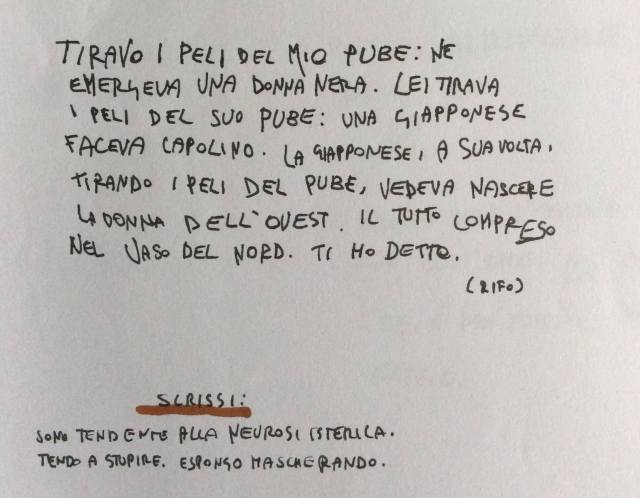 TIRAVO I PELI DEL MIO PUBE: NE
EMERGEVA UNA DONNA NERA. LEI TIRAVA
I PELI DEL SUO PUBE: UNA GIAPPONESE
FACEVA CAPOLINO. LA GIAPPONESE, A SUA VOLTA,
TIRANDO I PELI DEL PUBE, VEDEVA NASCERE
LA DONNA DELL'OVEST. IL TUTTO COMPRESO
NEL VASO DEL NORD. TI HO DETTO.
(RIFO)
SCRISSI:
SONO TENDENTE ALLA NEUROSI ISTERICA.
TENDO A STUPIRE. ESPONGO MASCHERANDO.